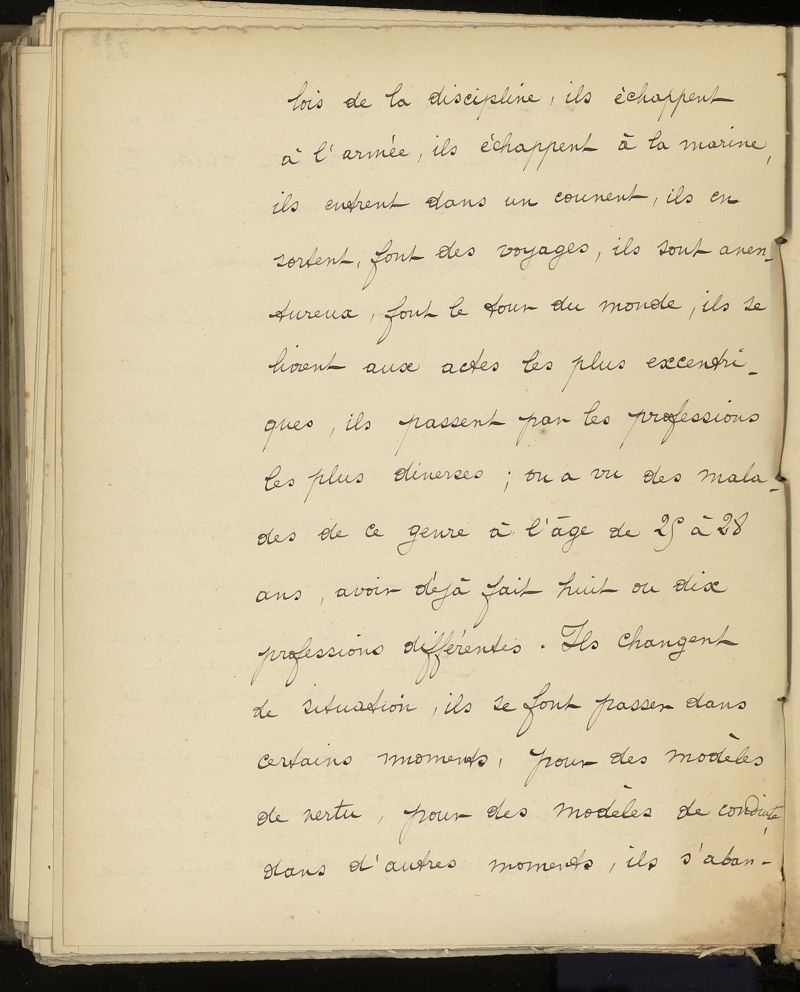 lois de la discipline, ils échappent
à l'armée, ils échappent à la marine,
ils entrent dans un couvent, ils en
sortent, font des voyages, ils sont aven-
tureux, font le tour du monde, ils se
livrent aux actes les plus excentri-
ques, ils passent par les professions
les plus diverses ; on a vu des mala-
des de ce genre à l'âge de 25 à 28
ans, avoir déjà fait huit ou dix
professions différentes. Ils changent
de situation, ils se font passer dans
certains moments, pour des modèles
de vertu, pour des modèles de conduite,
dans d'autres moments, ils s'aban-